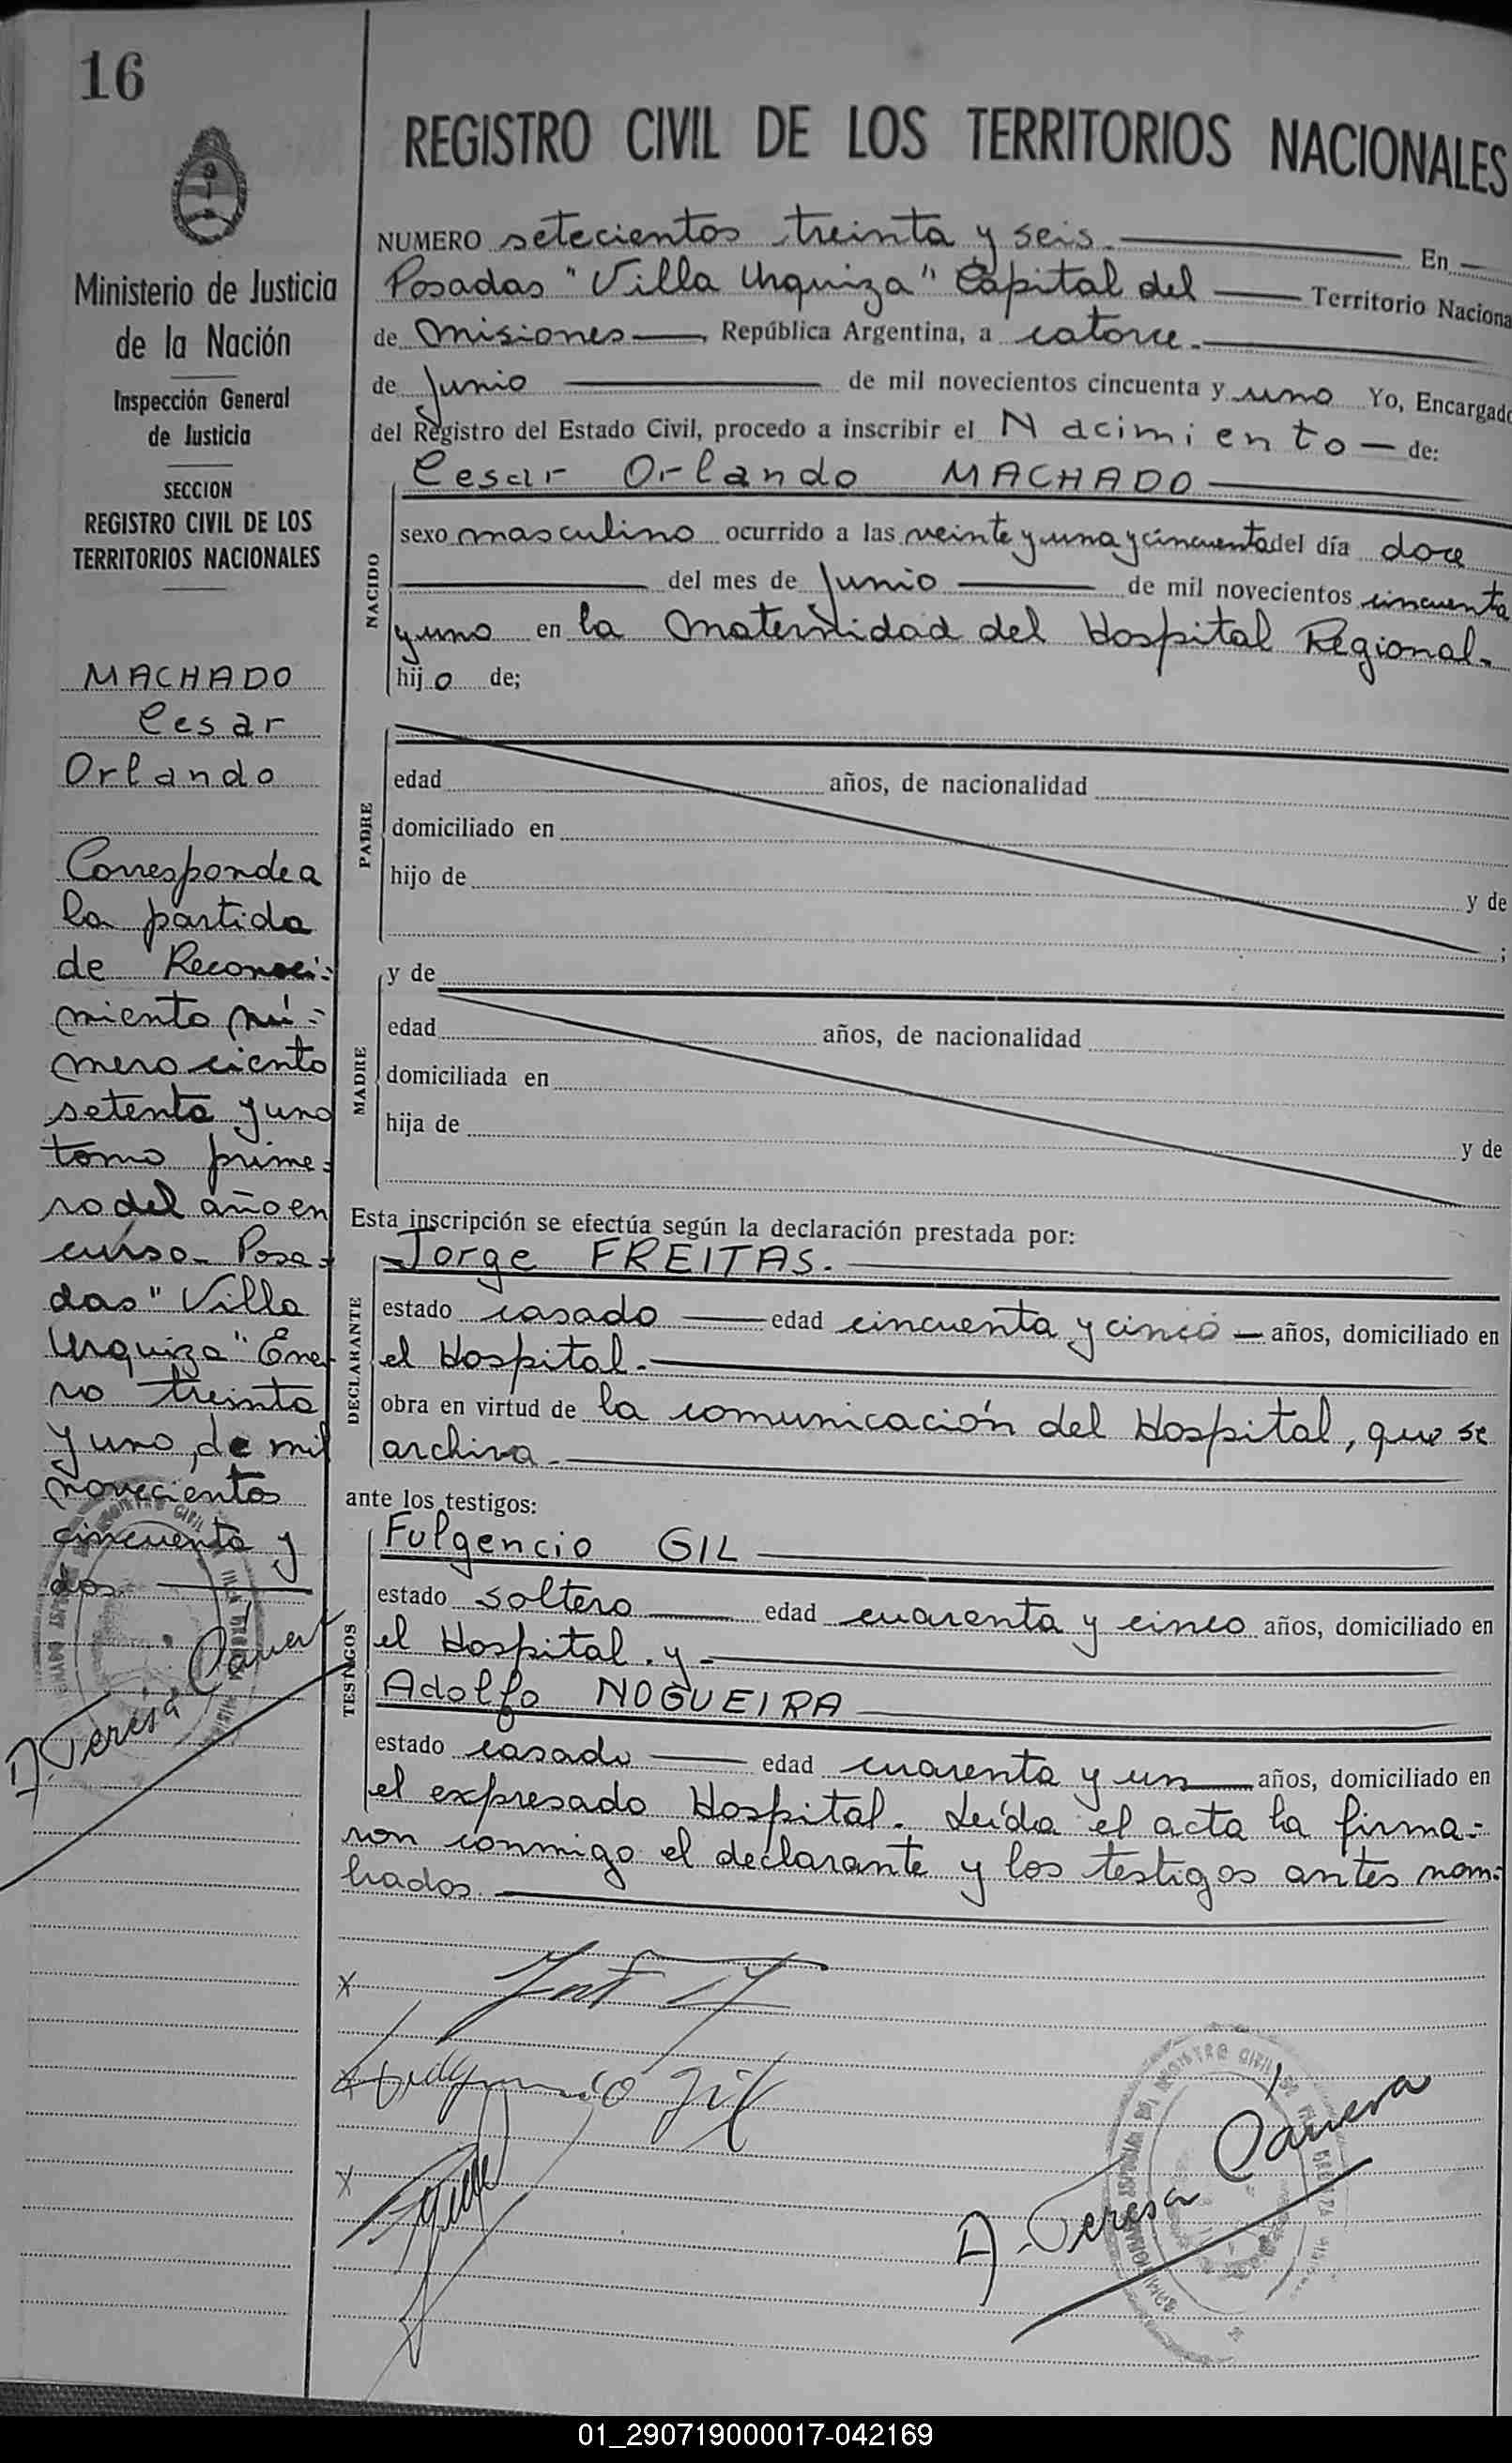 16
Ministerio de Justicia
de la Nación
Inspección General
de Justicia
SECCION
REGISTRO CIVIL DE LOS
TERRITORIOS NACIONALES
MACHADO
Cesar
Orlando
Corresponde a
la partida
de Reconoci-
miento nú-
mero ciento
setenta y uno
tomo prime-
ro del año en
curso - Posa-
das "Villa
Urquiza" Ene-
ro treinta
y uno, de mil
novecientos
cincuenta y
dos.
A. Teresa Canera
REGISTRO CIVIL DE LOS TERRITORIOS NACIONALES
NUMERO setecientos treinta y seis. En
Posadas "Villa Urquiza" Capital del Territorio Naciona
de Misiones República Argentina, a catorce.
de Junio de mil novecientos cincuenta y uno Yo, Encargado
del Registro del Estado Civil, procedo a inscribir el Nacimiento de:
Cesar Orlando MACHADO
NACIDO
sexo masculino ocurrido a las veinte y una y cincuenta del día doce
del mes de Junio de mil novecientos cincuenta
y uno en la Maternidad del Hospital Regional.
hijo de;
PADRE
edad años, de nacionalidad
domiciliado en
hijo de y de
;
MADRE
y de
edad años, de nacionalidad
domiciliada en
hija de y de
Esta inscripción se efectúa según la declaración prestada por:
DECLARANTE
Jorge FREITAS.
estado casado edad cincuenta y cinco años, domiciliado en
el Hospital.
obra en virtud de la comunicación del Hospital, que se
archiva.
ante los testigos:
TESTIGOS
Fulgencio GIL
estado soltero edad cuarenta y cinco años, domiciliado en
el Hospital. y
Adolfo NOGUEIRA
estado casado edad cuarenta y un años, domiciliado en
el expresado Hospital. Leída el acta la firma-
ron conmigo el declarante y los testigos antes nom-
brados.
x
x Fulgencio Gil
x
A. Teresa Canera
01_290719000017-042169